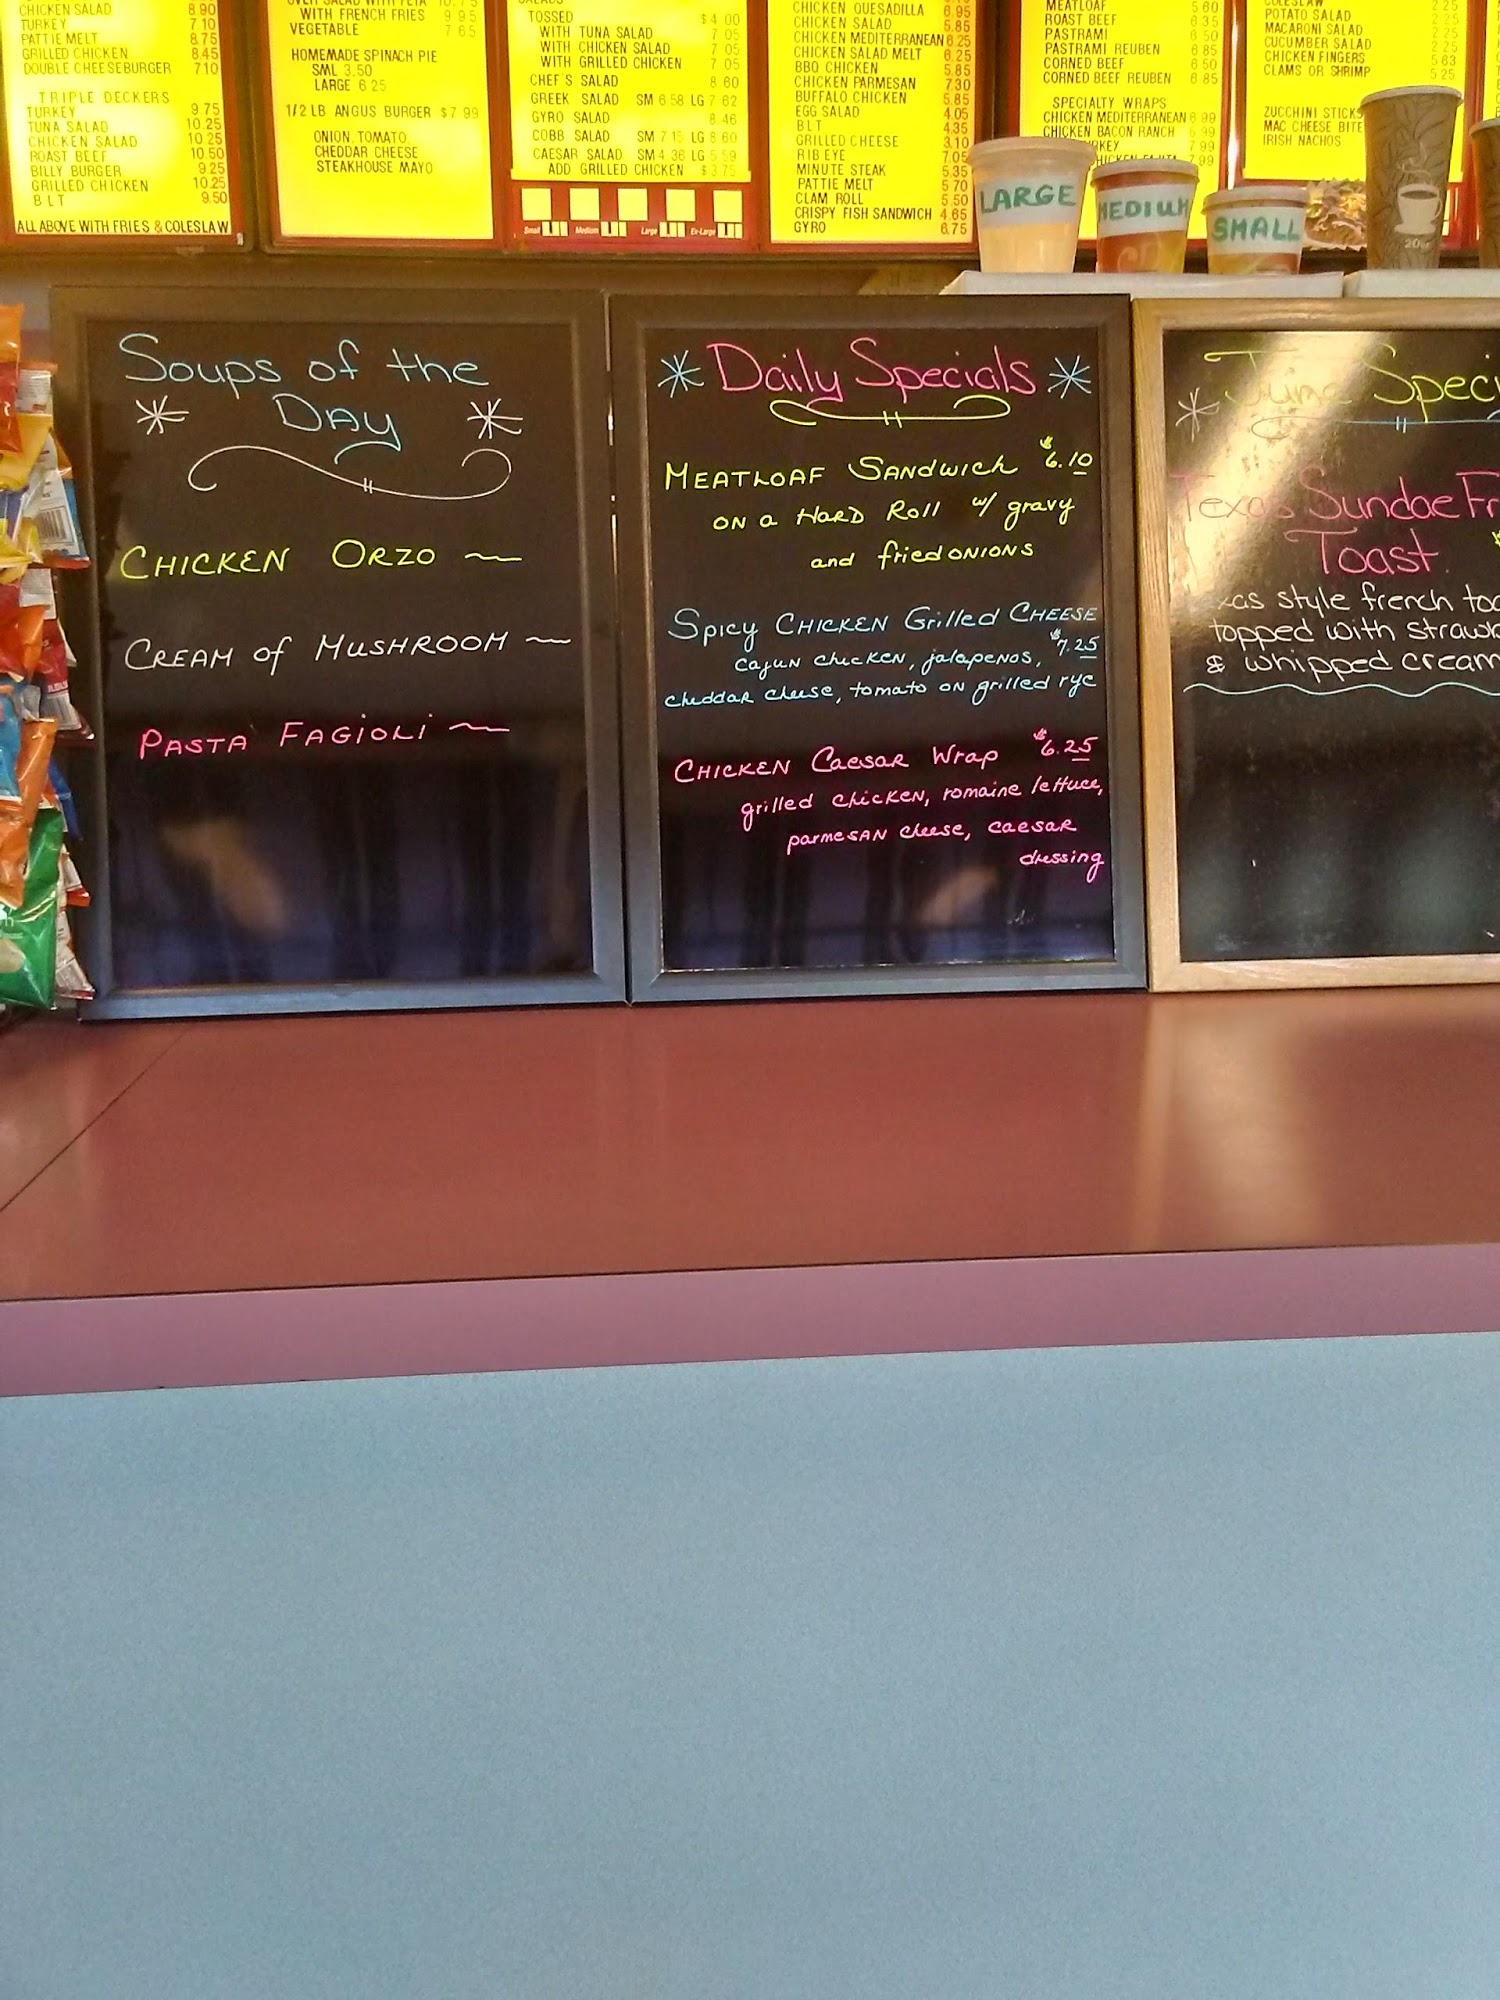 CHICKEN SALAD 8.90
TURKEY 7.10
PATTIE MELT 8.75
GRILLED CHICKEN 8.45
DOUBLE CHEESEBURGER 7.10
TRIPLE DECKERS
TURKEY 9.75
TUNA SALAD 10.25
CHICKEN SALAD 10.25
ROAST BEEF 10.50
BILLY BURGER 9.25
GRILLED CHICKEN 10.25
BLT 9.50
ALL ABOVE WITH FRIES & COLESLAW
OVER SALAD WITH FETA
WITH FRENCH FRIES 9 95
VEGETABLE 7 65
HOMEMADE SPINACH PIE
SML 3.50
LARGE 6 25
1/2 LB ANGUS BURGER $7 99
ONION, TOMATO,
CHEDDAR CHEESE
STEAKHOUSE MAYO
SALADS
TOSSED $4 00
WITH TUNA SALAD 7 05
WITH CHICKEN SALAD 7 05
WITH GRILLED CHICKEN 7 05
CHEF'S SALAD 8 60
GREEK SALAD SM 6 58 LG 7 62
GYRO SALAD 8.46
COBB SALAD SM 7 15 LG 8 60
CAESAR SALAD SM 4 36 LG 5 59
ADD GRILLED CHICKEN $3.75
Small Medium Large Ex-Large
CHICKEN QUESADILLA 6.95
CHICKEN SALAD 5.85
CHICKEN MEDITERRANEAN 6.25
CHICKEN SALAD MELT 6.25
BBQ CHICKEN 5.85
CHICKEN PARMESAN 7.30
BUFFALO CHICKEN 5.85
EGG SALAD 4.05
BLT 4.35
GRILLED CHEESE 3.10
RIB EYE 7.05
MINUTE STEAK 5.35
PATTIE MELT 5 70
CLAM ROLL 5.50
CRISPY FISH SANDWICH 4.65
GYRO 6.75
MEATLOAF 5 60
ROAST BEEF 6 35
PASTRAMI 6 50
PASTRAMI REUBEN 6 85
CORNED BEEF 6 50
CORNED BEEF REUBEN 6 85
SPECIALTY WRAPS
CHICKEN MEDITERRANEAN 6 99
CHICKEN BACON RANCH 6 99
7.99
CHICKEN FAJITA 7.99
COLESLAW 2 25
POTATO SALAD 2 25
MACARONI SALAD 2 25
CUCUMBER SALAD 2 25
CHICKEN FINGERS 5 63
CLAMS OR SHRIMP 5 25
ZUCCHINI STICKS
MAC CHEESE BITE
IRISH NACHOS
LARGE
MEDIUM
SMALL
20oz
Soups of the
DAY
CHICKEN ORZO
CREAM of MUSHROOM
PASTA FAGIOLI
Daily Specials
MEATLOAF SANDWICH $6.10
ON a HARD Roll w/ gravy
and fried ONIONS
Spicy CHICKEN Grilled CHEESE
$7.25
cajun chicken, jalapenos,
cheddar cheese, tomato on grilled rye
CHICKEN Caesar Wrap $6.25
grilled chicken, romaine lettuce,
parmesan cheese, caesar
dressing
June Speci
Texas Sundae Fr
Toast
xas style french toa
topped with strawb
& whipped cream